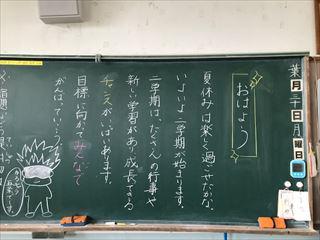 葉月三十日月曜日
おはよう
夏休みは楽しく過ごせたかな。
いよいよ二学期が始まります。
二学期は、たくさんの行事や
新しい学習があり、成長できる
チャンスがいっぱいあります。
目標に向かってみんなで
がんばっていこう!